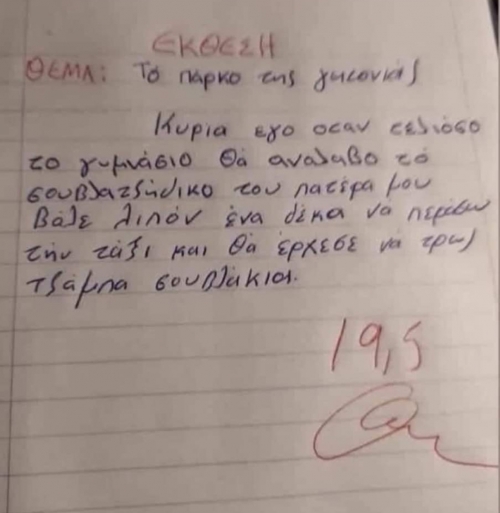 ΕΚΘΕΣΗ
ΘΕΜΑ: Τό παρκο της γητονιάς
Κυρια εγο οταν τελιόσο
το γυμνάσιο θά αναλαβο τό
σουβλατζήδικο του πατέρα μου
Βάλε λιπόν ένα δέκα να περάσω
την τάξι και θά έρχεσε νά τρως
τζάμπα σουβλάκια.
19,5